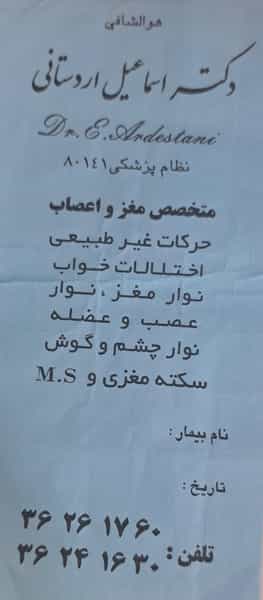 هوالشافی
دکتر اسماعیل اردستانی
Dr. E. Ardestani
نظام پزشکی ۸۰۱۴۱
متخصص مغز و اعصاب
حرکات غیر طبیعی
اختلالات خواب
نوار مغز ، نوار
عصب و عضله
نوار چشم و گوش
سکته مغزی و M.S
نام بیمار :
تاریخ :
۳۶ ۲۶ ۱۷ ۶۰
تلفن : ۳۶ ۲۴ ۱۶ ۳۰